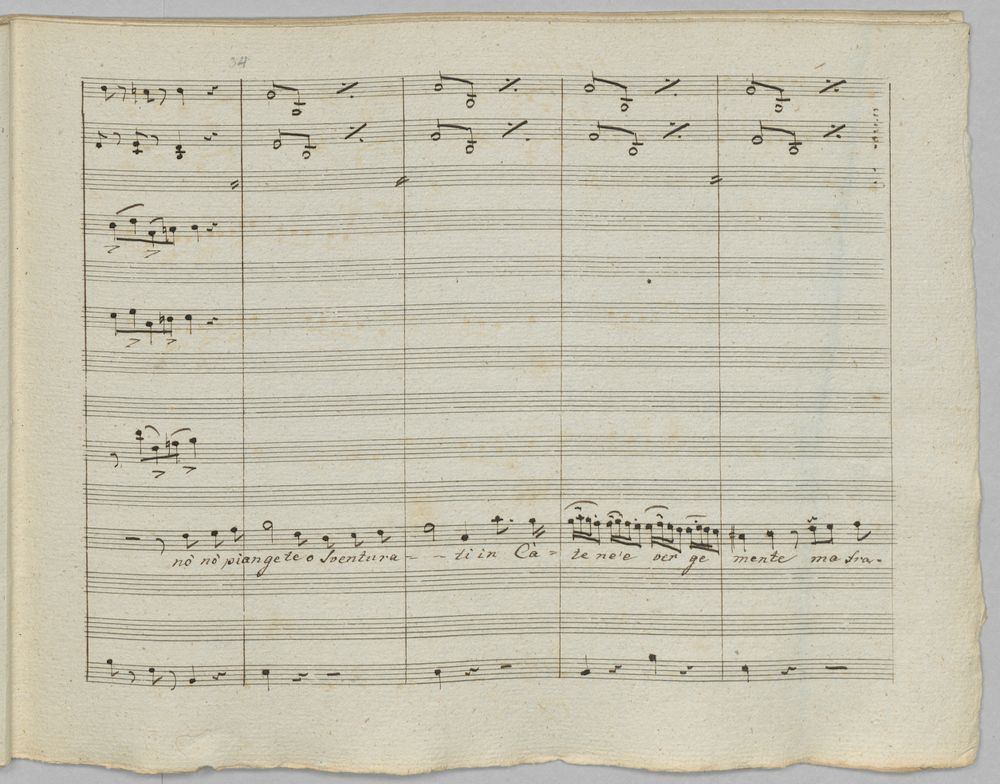 34
no no piangete o sventura - - ti in Ca = te ne e ver ge mente ma fra -